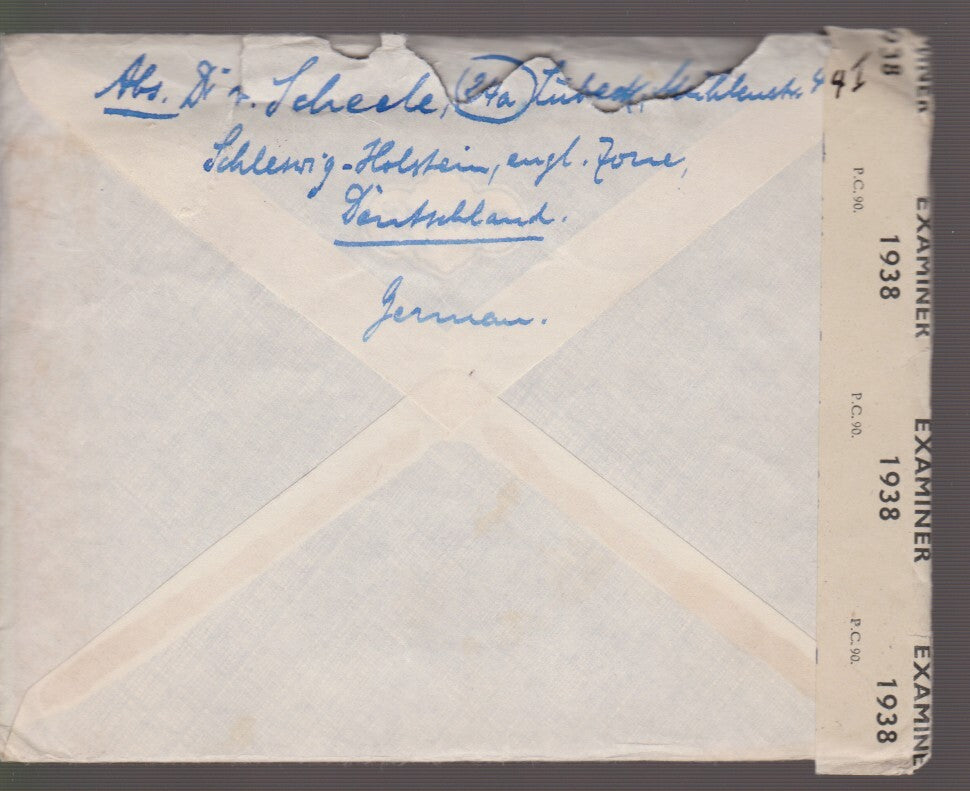 Abs. Dr. v. Scheele, (24a) Lübeck, Mühlenstr. 491
Schleswig-Holstein, engl. Zone,
Deutschland.
German.
938
MINER
P.C. 90.
1938
EXAMINER
P.C. 90.
1938
EXAMINER
P.C. 90.
1938
EXAMINE